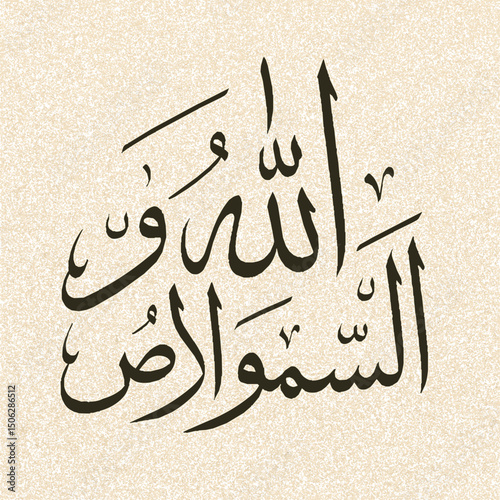 اللهُ وَ
السَّموالارصُ
Adobe Stock | #1506286512